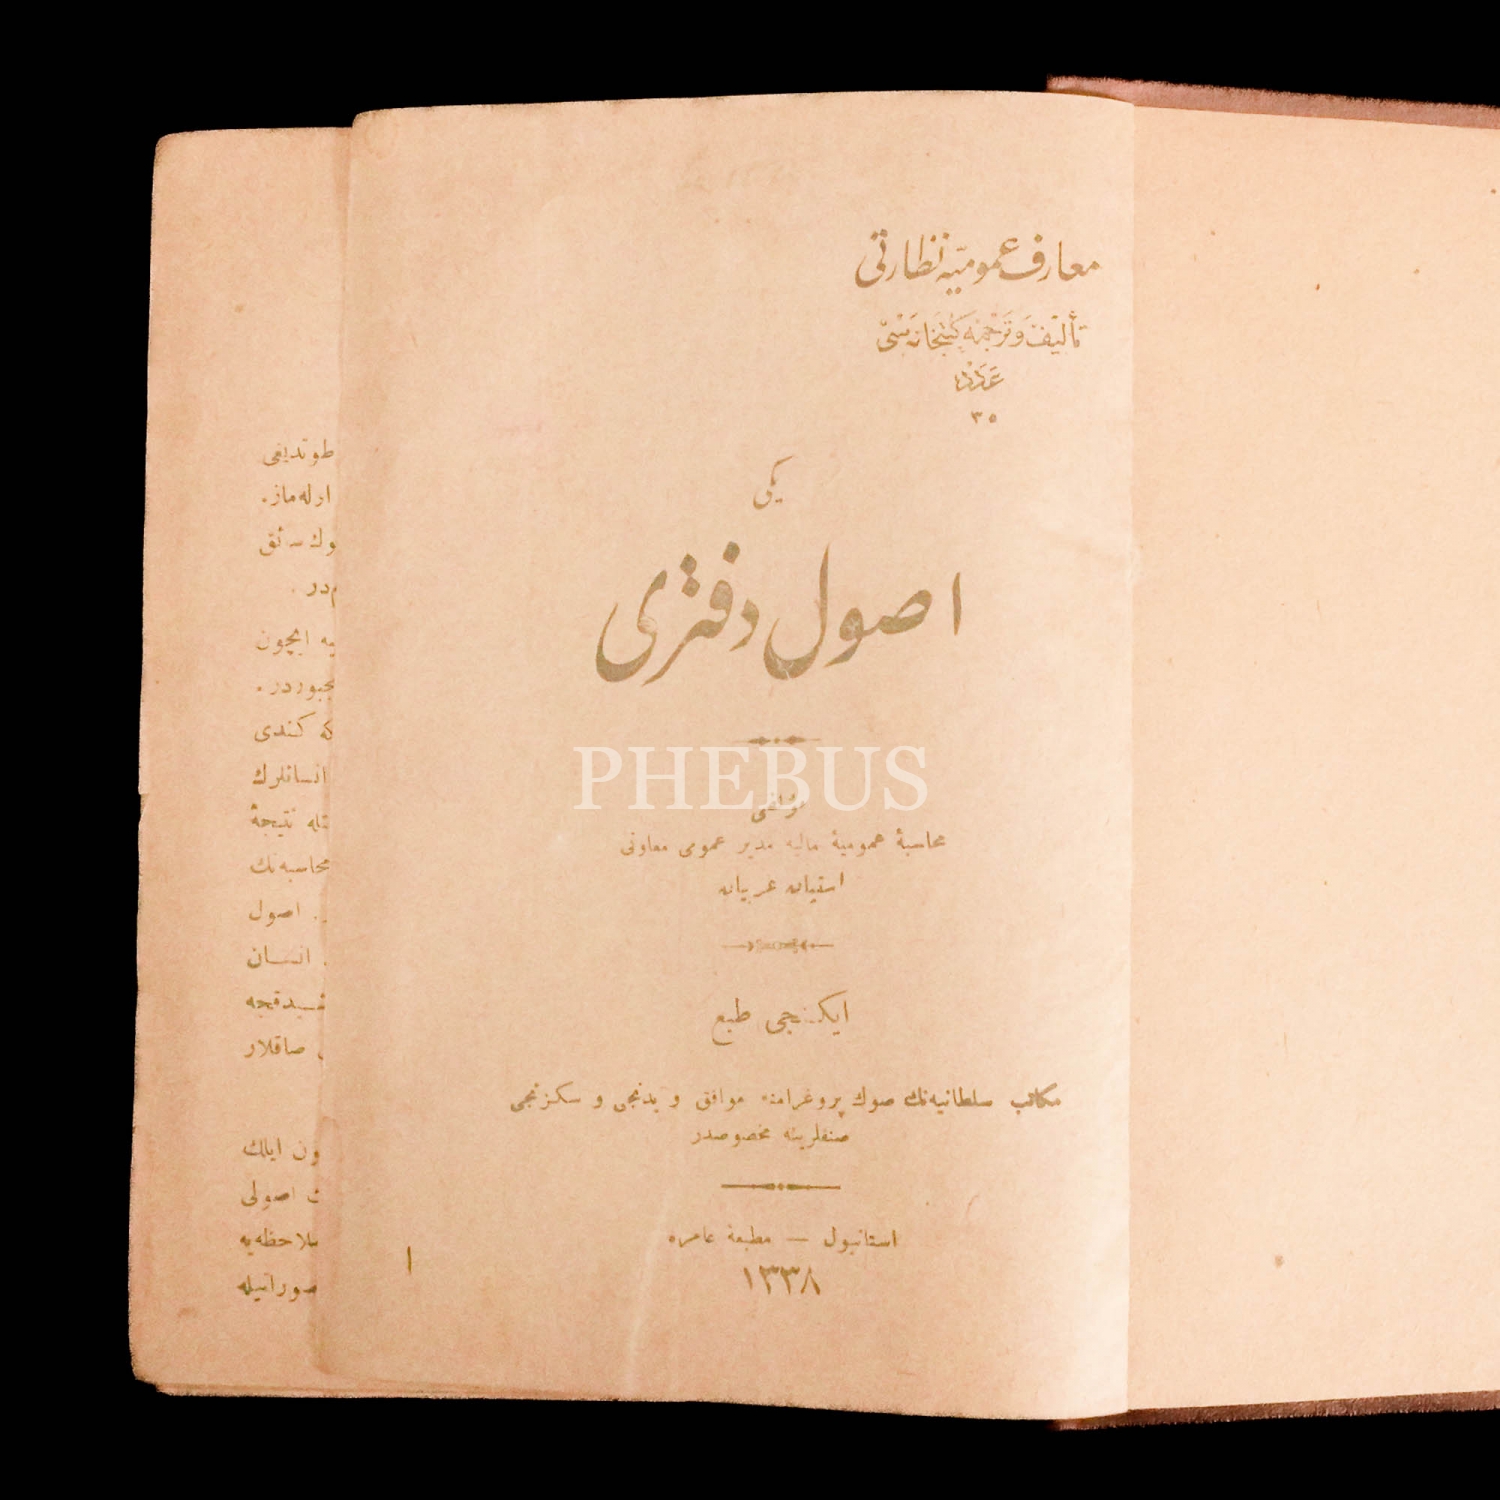 معارف عمومیّه نظارتی
تألیف و ترجمه کتبخانه‌سی
عدد
٣٥
یکی
اصول دفتری
PHEBUS
مؤلفی
محاسبهٔ عمومیهٔ مالیه مدیر عمومی معاونی
استپان غریبان
ایکنجی طبع
مکاتب سلطانیه‌نك صوك پروغرامنه موافق و یدنجی و سکزنجی
صنفلرینه مخصوصدر
استانبول — مطبعهٔ عامره
١٣٣٨
١
طوتدیغی
اوله‌ماز.
سائق
در.
ایچون
مجبوردر.
کندی
انسانلرك
نتیجهٔ
محاسبه‌نك
اصول
انسان
صاقلار
ایلك
اصولی
ملاحظه‌یه